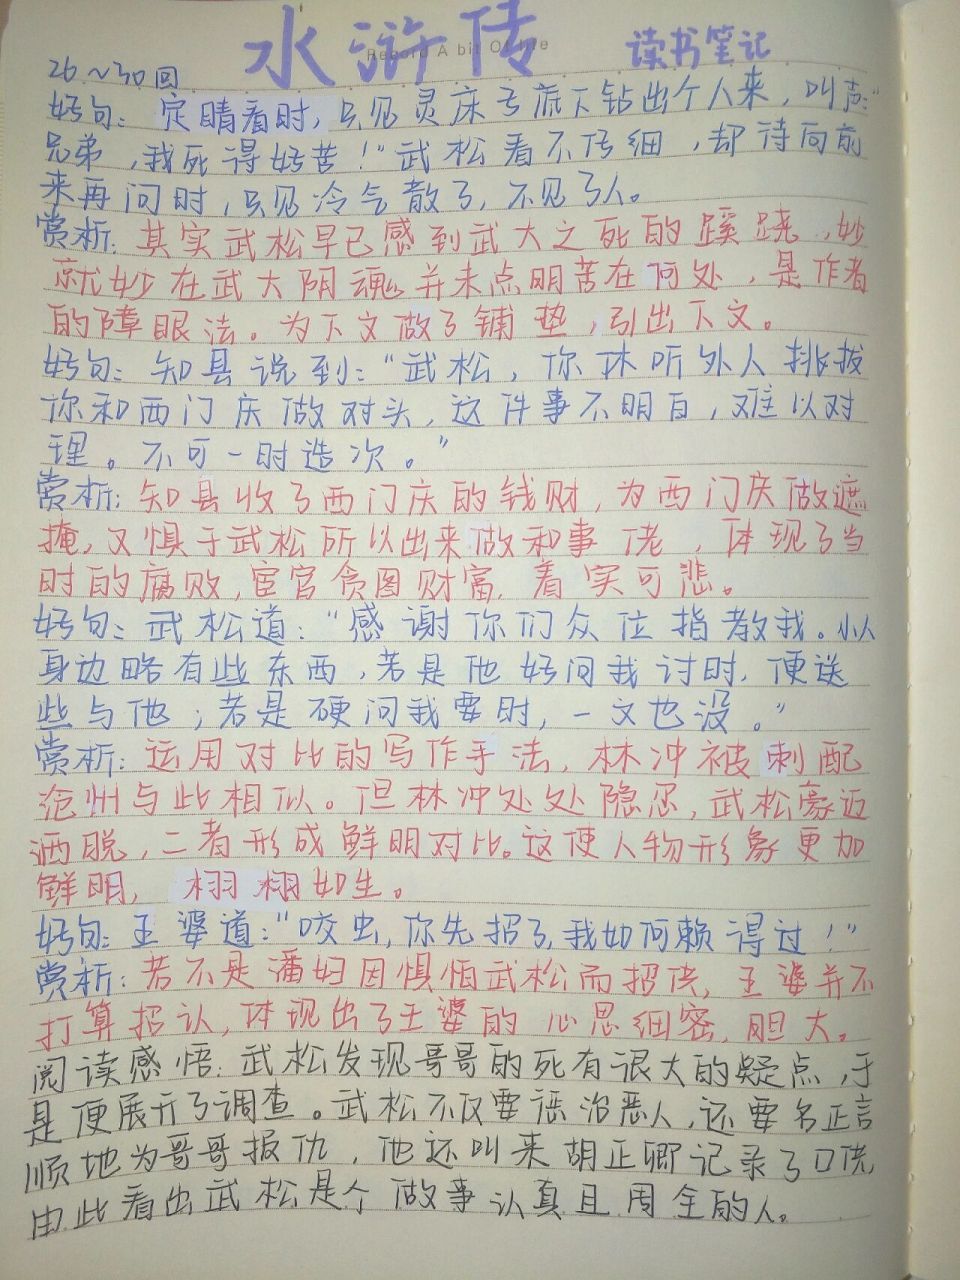 水浒传 读书笔记
Record A bit Of life
26~30回
好句：定睛看时，只见灵床子底下钻出个人来，叫声：“
兄弟，我死得好苦！”武松看不仔细，却待向前
来再问时，只见冷气散了，不见了人。
赏析：其实武松早已感到武大之死的蹊跷，妙
就妙在武大阴魂并未点明苦在何处，是作者
的障眼法。为下文做了铺垫，引出下文。
好句：知县说到：“武松，你休听外人挑拨
你和西门庆做对头，这件事不明白，难以对
理。不可一时造次。”
赏析：知县收了西门庆的钱财，为西门庆做遮
掩，又惧于武松所以出来做和事佬，体现了当
时的腐败，宦官贪图财富，着实可悲。
好句：武松道：“感谢你们众位指教我。小人
身边略有些东西，若是他好问我讨时，便送
些与他；若是硬问我要时，一文也没。”
赏析：运用对比的写作手法，林冲被刺配
沧州与此相似。但林冲处处隐忍，武松豪迈
洒脱，二者形成鲜明对比。这使人物形象更加
鲜明，栩栩如生。
好句：王婆道：“咬虫，你先招了，我如何赖得过！”
赏析：若不是潘妇因惧怕武松而招供，王婆并不
打算招认，体现出了王婆的心思细密，胆大。
阅读感悟：武松发现哥哥的死有很大的疑点，于
是便展开了调查。武松不仅要惩治恶人，还要名正言
顺地为哥哥报仇，他还叫来胡正卿记录了口供
由此看出武松是个做事认真且周全的人。